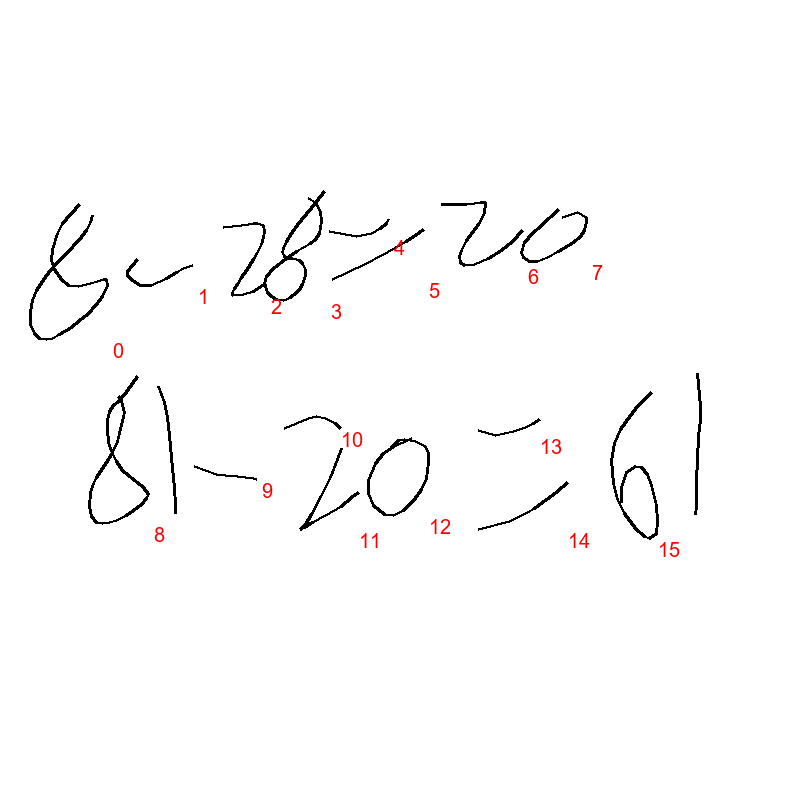 8-28=20
0 1 2 3 4 5 6 7
81-20=61
8 9 10 11 12 13 14 15